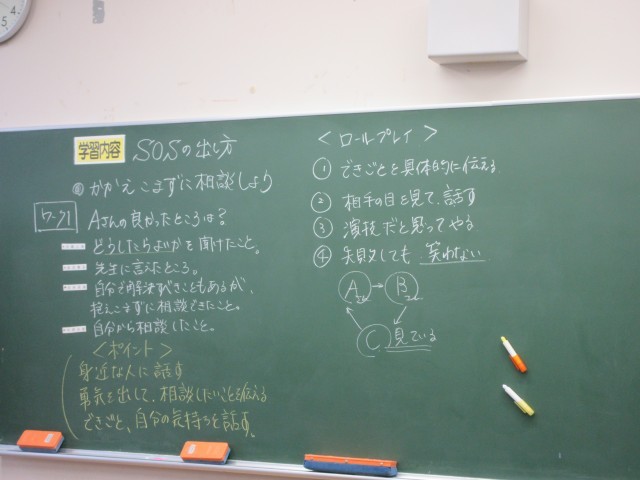 学習内容 SOSの出し方
かかえこまずに相談しよう
ワーク1 Aさんの良かったところは？
どうしたらよいかを聞けたこと。
先生に言えたところ。
自分で解決すべきこともあるが、
抱えこまずに相談できたこと。
自分から相談したこと。
＜ポイント＞
身近な人に話す
勇気を出して、相談したいことを伝える
できごと、自分の気持ちを話す。
＜ロールプレイ＞
① できごとを具体的に伝える
② 相手の目を見て、話す
③ 演技だと思ってやる
④ 失敗しても 笑わない
A → B
C 見ている
4
5